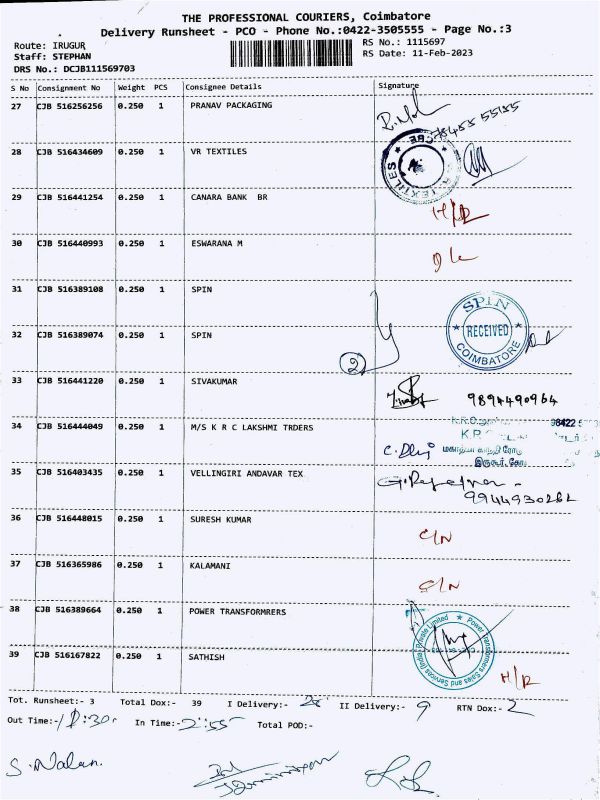 THE PROFESSIONAL COURIERS, Coimbatore
Delivery Runsheet - PCO - Phone No.:0422-3505555 - Page No.:3
Route: IRUGUR
RS No.: 1115697
Staff: STEPHAN
RS Date: 11-Feb-2023
DRS No.: DCJB111569703
S No Consignment No Weight PCS Consignee Details Signature
27 CJB 516256256 0.250 1 PRANAV PACKAGING
28 CJB 516434609 0.250 1 VR TEXTILES
29 CJB 516441254 0.250 1 CANARA BANK BR H/R
30 CJB 516440993 0.250 1 ESWARANA M
31 CJB 516389108 0.250 1 SPIN
SPIN
RECEIVED
COIMBATORE
32 CJB 516389074 0.250 1 SPIN
2
33 CJB 516441220 0.250 1 SIVAKUMAR 9894490964
34 CJB 516444049 0.250 1 M/S K R C LAKSHMI TRDERS
98422
மகாத்மா காந்தி ரோடு
35 CJB 516403435 0.250 1 VELLINGIRI ANDAVAR TEX
36 CJB 516448015 0.250 1 SURESH KUMAR C/N
37 CJB 516365986 0.250 1 KALAMANI C/N
38 CJB 516389664 0.250 1 POWER TRANSFORMRERS
Power Transformers Sales and Services (India) Private Limited
39 CJB 516167822 0.250 1 SATHISH H/R
Tot. Runsheet:- 3 Total Dox:- 39 I Delivery:- II Delivery:- 9 RTN Dox:- 2
Out Time:- In Time:- 2:55 Total POD:-
S. Nalan.